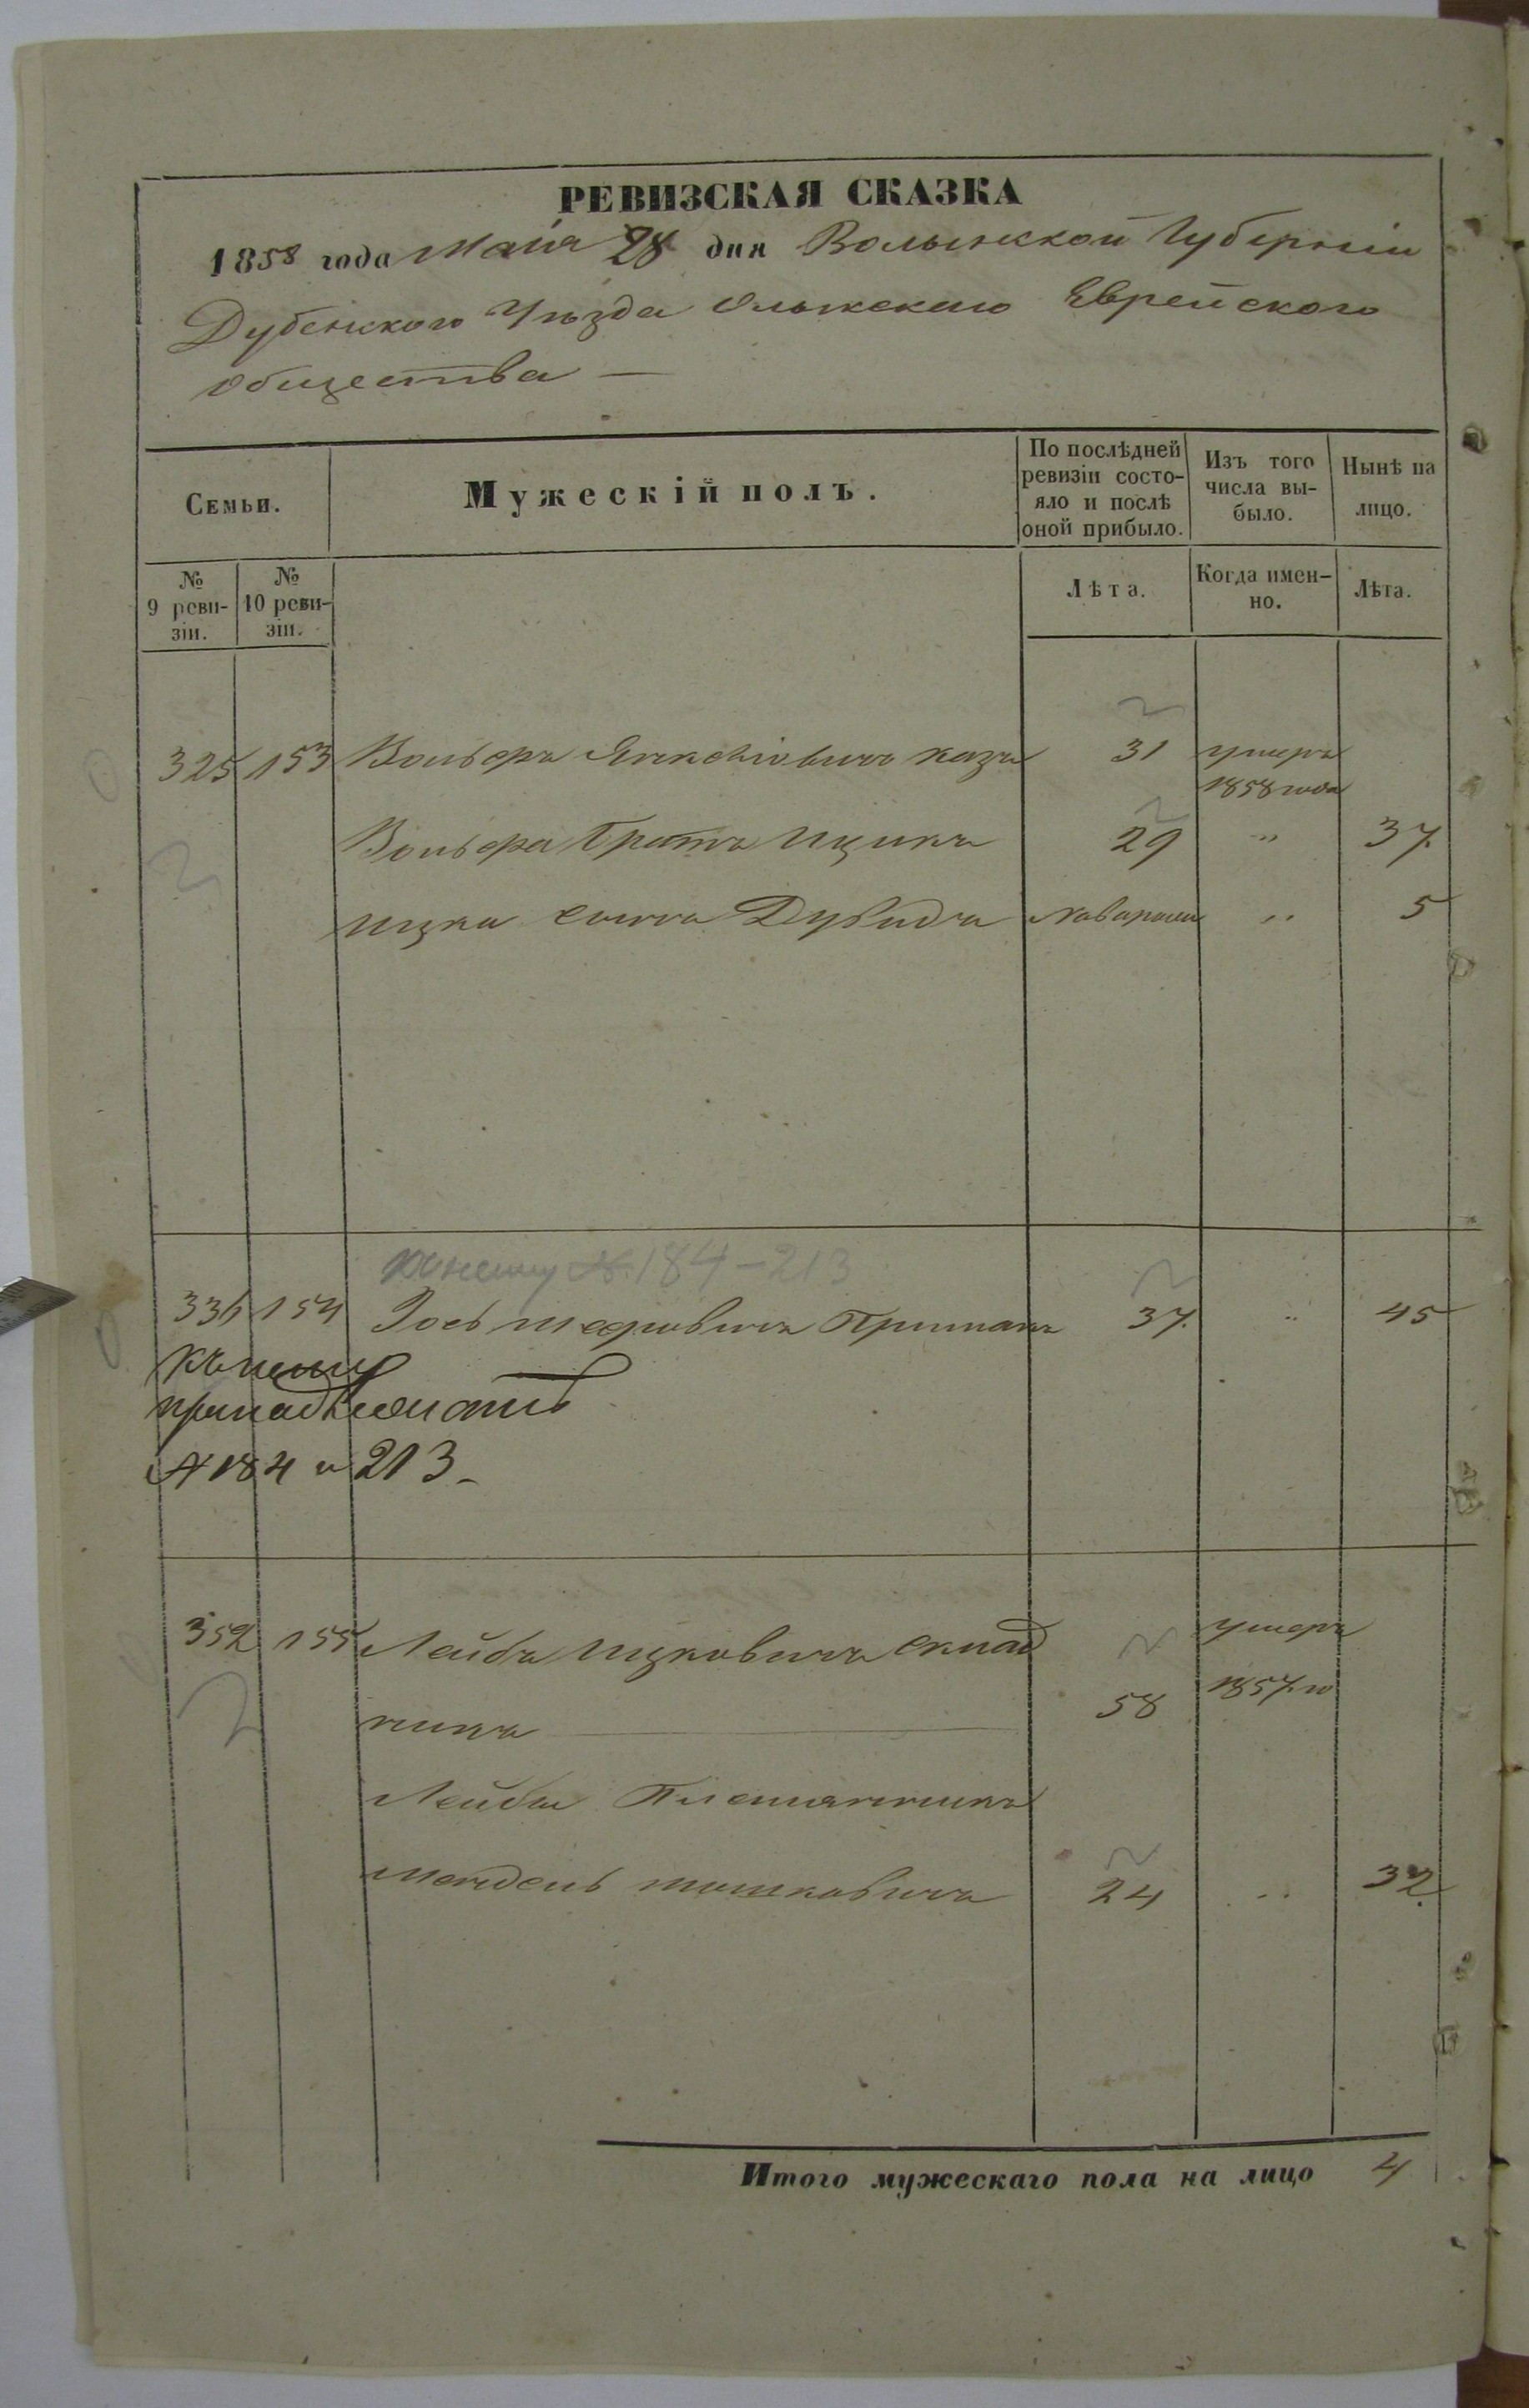 РЕВИЗСКАЯ СКАЗКА
1858 года Маія 28 дня Волынской Губерніи
Дубенского Уѣзда Олыкского Еврейского
Общества —
Семьи.
Мужескій полъ.
По послѣдней ревизіи состо-
яло и послѣ
оной прибыло.
Изъ того
числа вы-
было.
Нынѣ на
лицо.
№
9 реви-
зіи.
№
10 реви-
зіи.
Лѣта.
Когда имен-
но.
Лѣта.
325 153 Вольфъ 31 умеръ
1858 года
Вольфа братъ Ицикъ 29 " 37.
Ицка сынъ Дувидъ " 5
къ нему № 184-213
336 154 Іось 37. " 45
къ нему
принадлежитъ
№ 184 и 213 -
352 155 Лейба Ицковичъ Склад умеръ
чикъ 58 1857 го
Лейбы Племянникъ
Мендель Мошковичъ 24 " 32.
Итого мужескаго пола на лицо 4